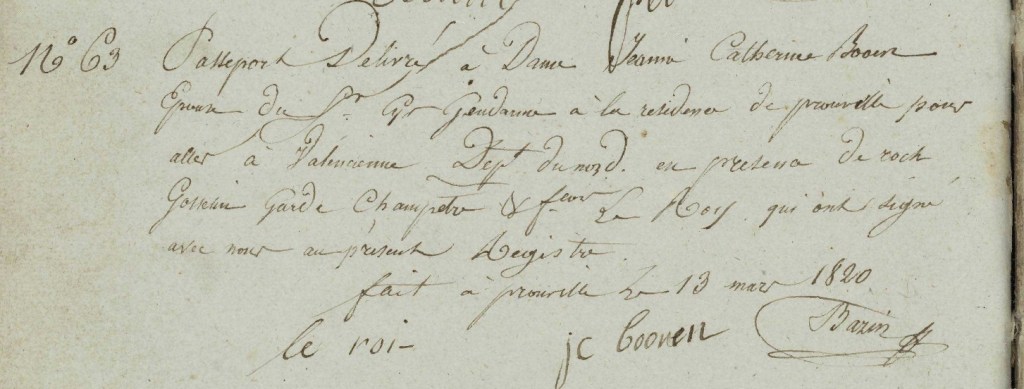 N° 63 Passeport Délivré à Dame Jeanne Catherine Booen
Epouse du Sr. Cyr Gendarme à la residence de prouville pour
aller à Valencienne Dépt du nord. en presence de roch
Gosselin Garde Champetre & fcois Le Roy qui ont signé
avec nous au présent Registre.
fait à prouville Le 13 mars 1820
le roi jc booven Bazin